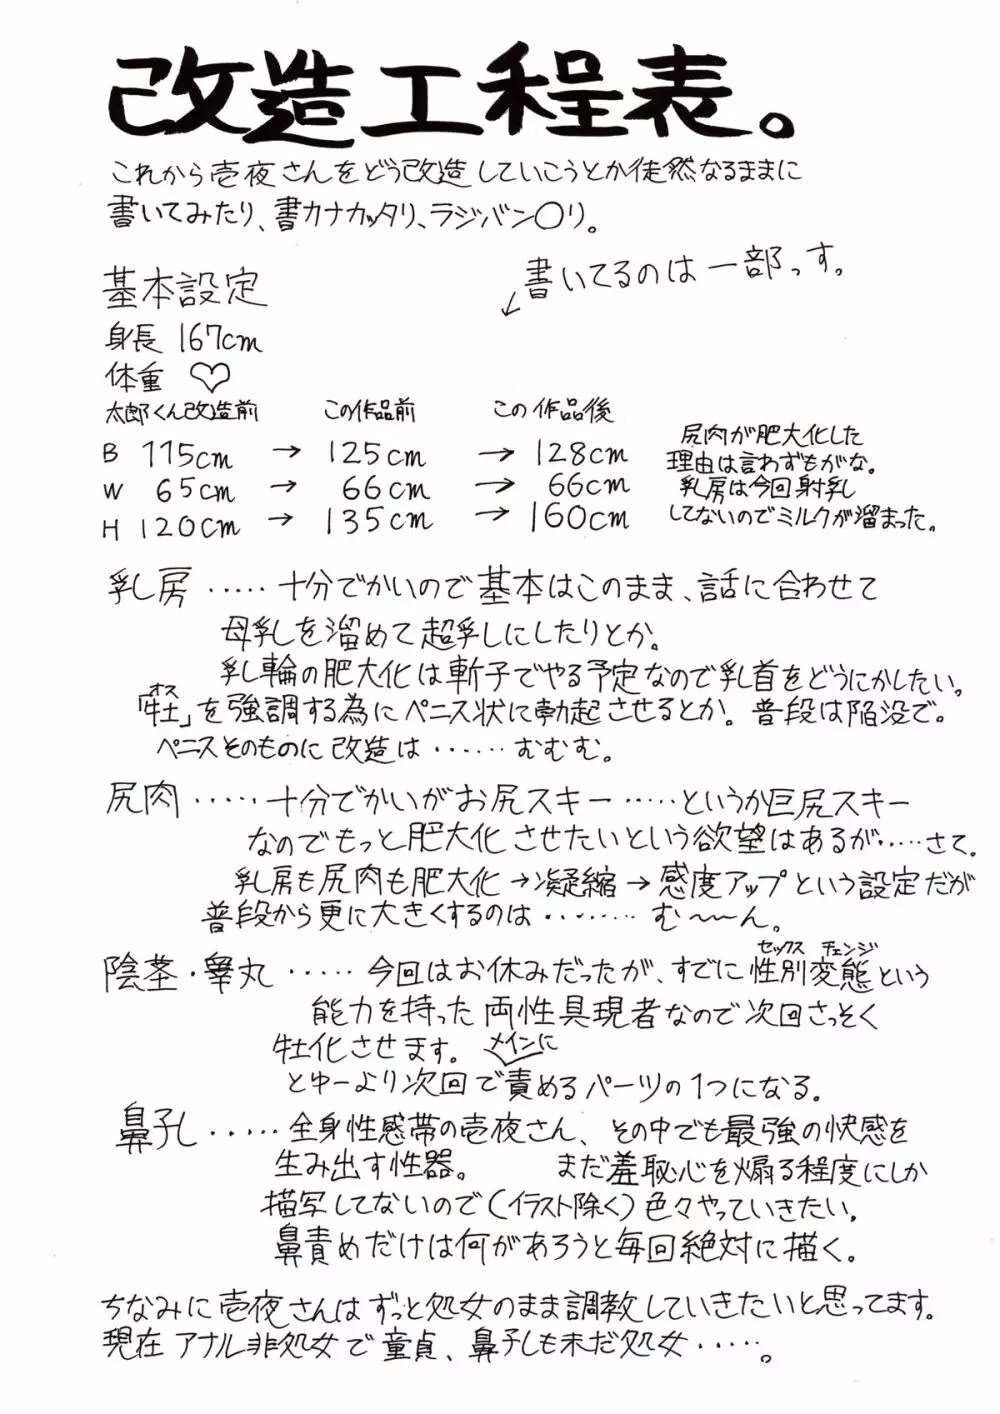 改造工程表。
これから壱夜さんをどう改造していこうとか徒然なるままに
書いてみたり、書カナカッタリ、ラジバン〇リ。
書いてるのは一部っす。
基本設定
身長 167cm
体重 ♡
太郎くん改造前 この作品前 この作品後
B 115cm → 125cm → 128cm
W 65cm → 66cm → 66cm
H 120cm → 135cm → 160cm
尻肉が肥大化した
理由は言わずもがな。
乳房は今回射乳
してないのでミルクが溜まった。
乳房……十分でかいので基本はこのまま、話に合わせて
母乳を溜めて超乳にしたりとか。
乳輪の肥大化は斬子でやる予定なので乳首をどうにかしたい。
オス
「牡」を強調する為にペニス状に勃起させるとか。普段は陥没で。
ペニスそのものに改造は……むむむ。
尻肉……十分でかいがお尻スキー……というか巨尻スキー
なのでもっと肥大化させたいという欲望はあるが……さて。
乳房も尻肉も肥大化→凝縮→感度アップという設定だが
普段から更に大きくするのは………む〜〜ん。
セックス チェンジ
陰茎・睾丸……今回はお休みだったが、すでに性別変態という
能力を持った両性具現者なので次回さっそく
牡化させます。
メインに
とゆーより次回で責めるパーツの1つになる。
鼻孔……全身性感帯の壱夜さん、その中でも最強の快感を
生み出す性器。 まだ羞恥心を煽る程度にしか
描写してないので(イラスト除く)色々やっていきたい。
鼻責めだけは何があろうと毎回絶対に描く。
ちなみに壱夜さんはずっと処女のまま調教していきたいと思ってます。
現在アナル非処女で童貞、鼻孔も未だ処女……。